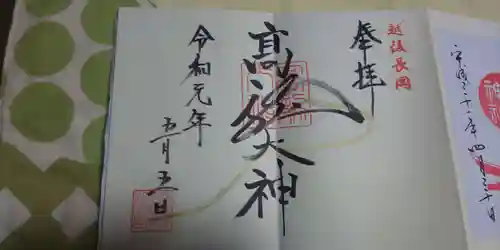 越後長岡
奉拝
高龍大神
令和元年
五月五日
平成三十一年四月三十日